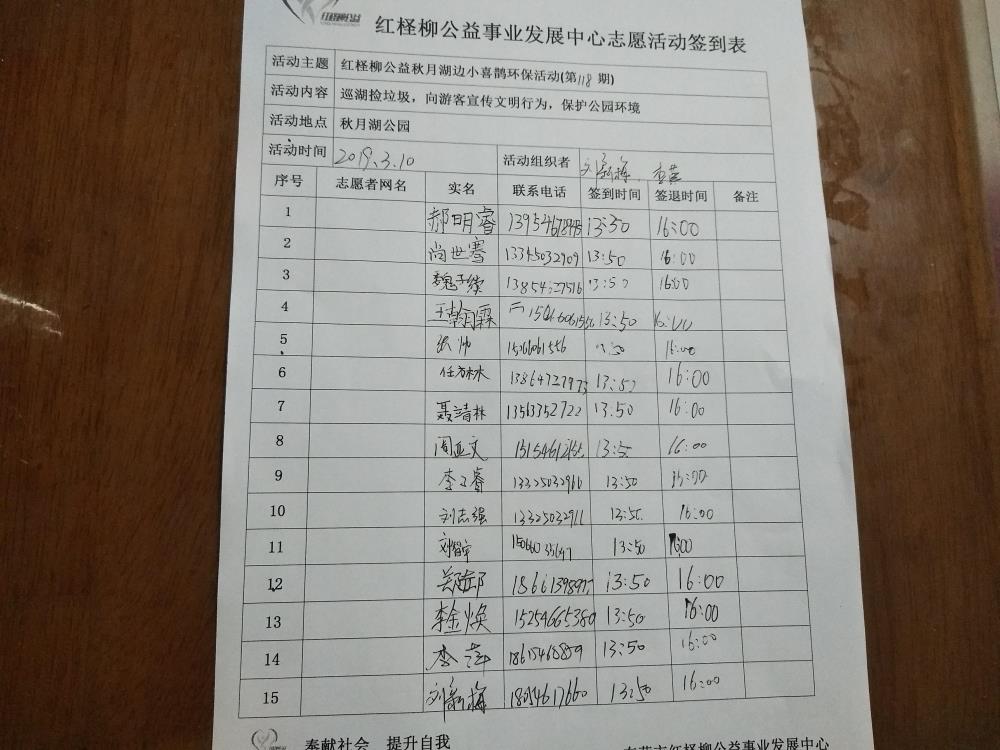 红柽柳公益事业发展中心志愿活动签到表
活动主题 红柽柳公益秋月湖边小喜鹊环保活动(第118期)
活动内容 巡湖捡垃圾，向游客宣传文明行为，保护公园环境
活动地点 秋月湖公园
活动时间 2019.3.10 活动组织者 刘新梅、李萍
序号 志愿者网名 实名 联系电话 签到时间 签退时间 备注
1 郝明睿 13:50 16:00
2 尚世骞 13345032909 13:50 16:00
3 魏子续 13854627516 13:50 16:00
4 王翰霖 13:50 16:00
5 张帅 13:50 16:00
6 任方林 13:50 16:00
7 聂靖林 13563352722 13:50 16:00
8 周亚文 13:5 16:00
9 李子睿 13325032910 13:50 16:00
10 刘志强 13325032911 13:50 16:00
11 13:50 16:00
12 13:50 16:00
13 李金焕 15254665380 13:50 16:00
14 李萍 13:50 16:00
15 刘新梅 18054617660 13:50 16:00
奉献社会 提升自我
红柽柳公益事业发展中心